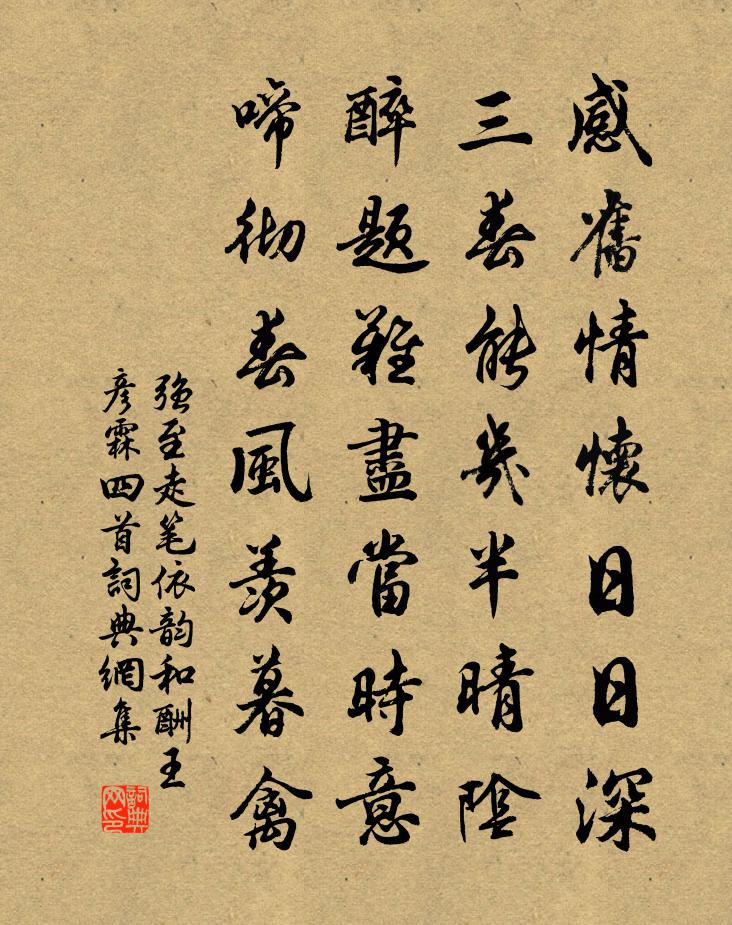 感舊情懷日日深
三春能幾半晴陰
醉題難盡當時意
啼彻春風羨暮禽
強至走笔依韵和酬王
彦霖四首詞典網集
詞典網印